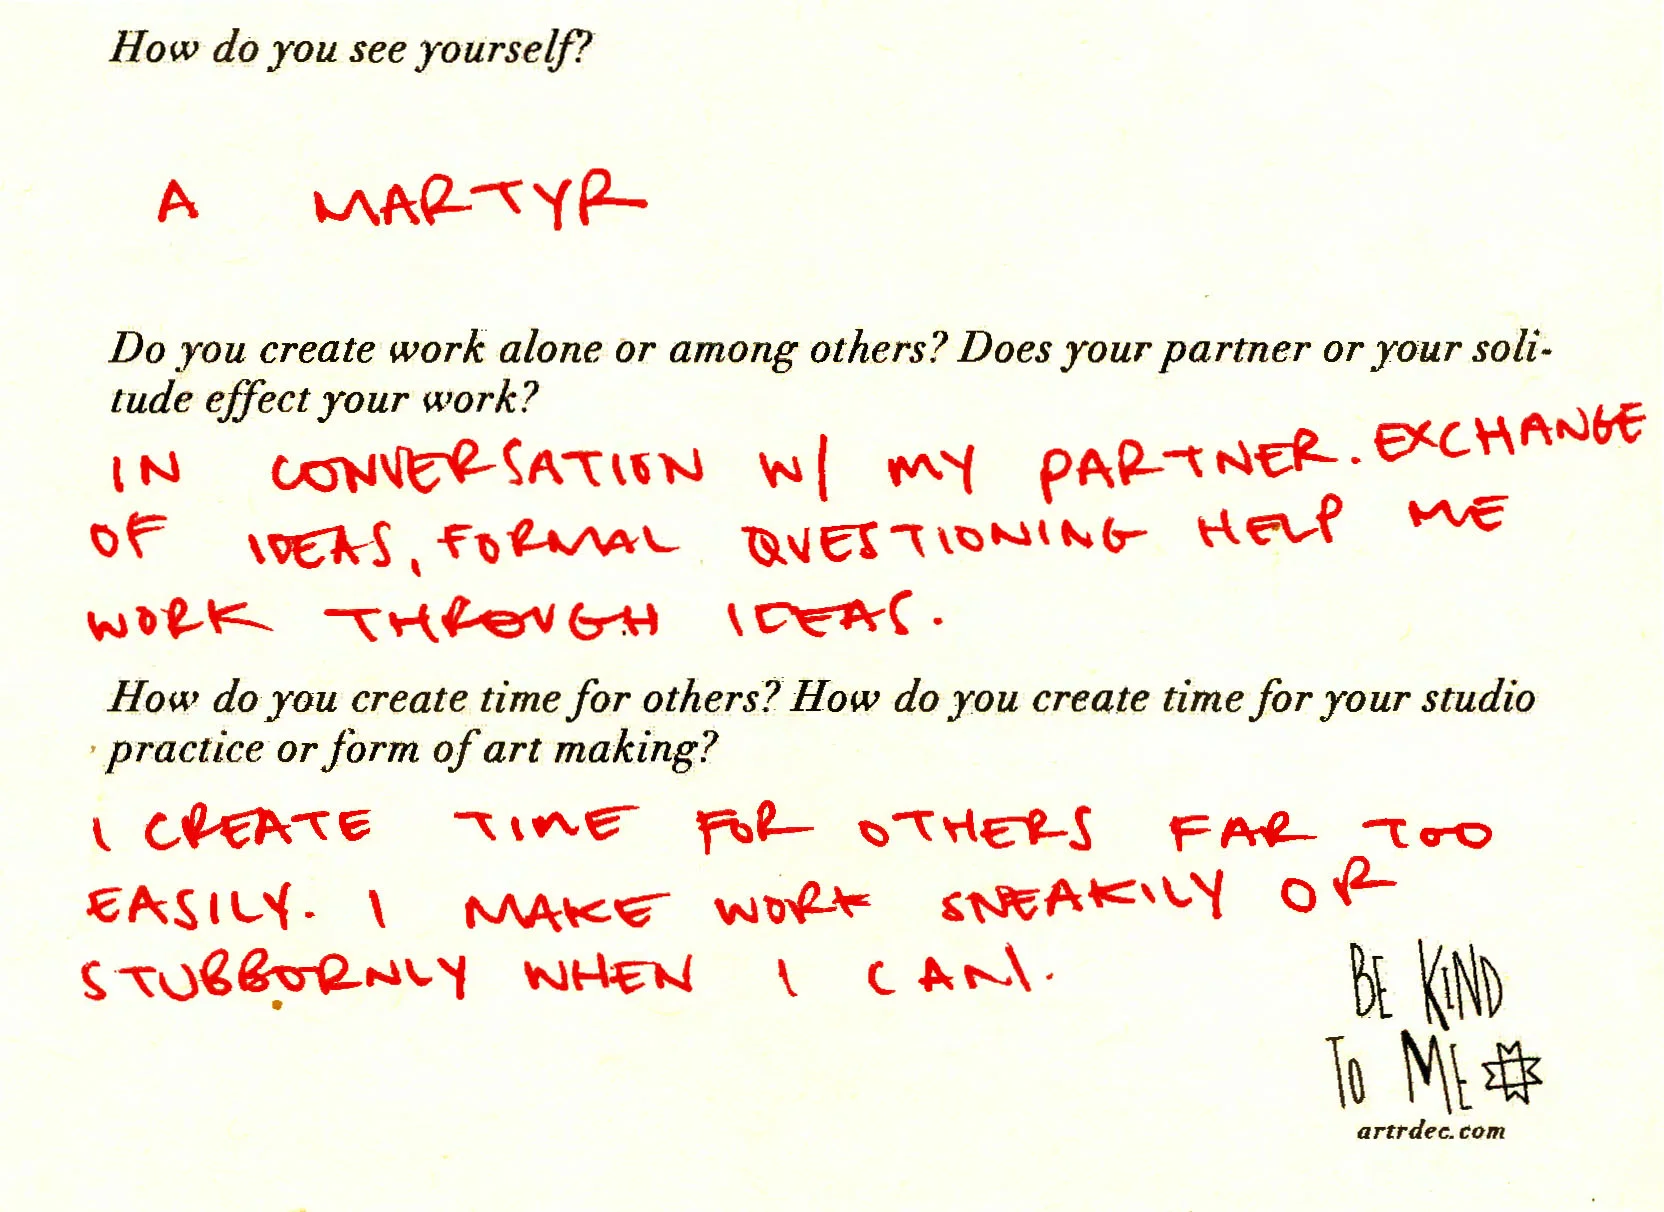 How do you see yourself?
A MARTYR
Do you create work alone or among others? Does your partner or your soli-
tude effect your work?
IN CONVERSATION W/ MY PARTNER. EXCHANGE
OF IDEAS, FORMAL QUESTIONING HELP ME
WORK THROUGH IDEAS.
How do you create time for others? How do you create time for your studio
practice or form of art making?
I CREATE TIME FOR OTHERS FAR TOO
EASILY. I MAKE WORK SNEAKILY OR
STUBBORNLY WHEN I CAN.
BE KIND
TO ME
artrdec.com